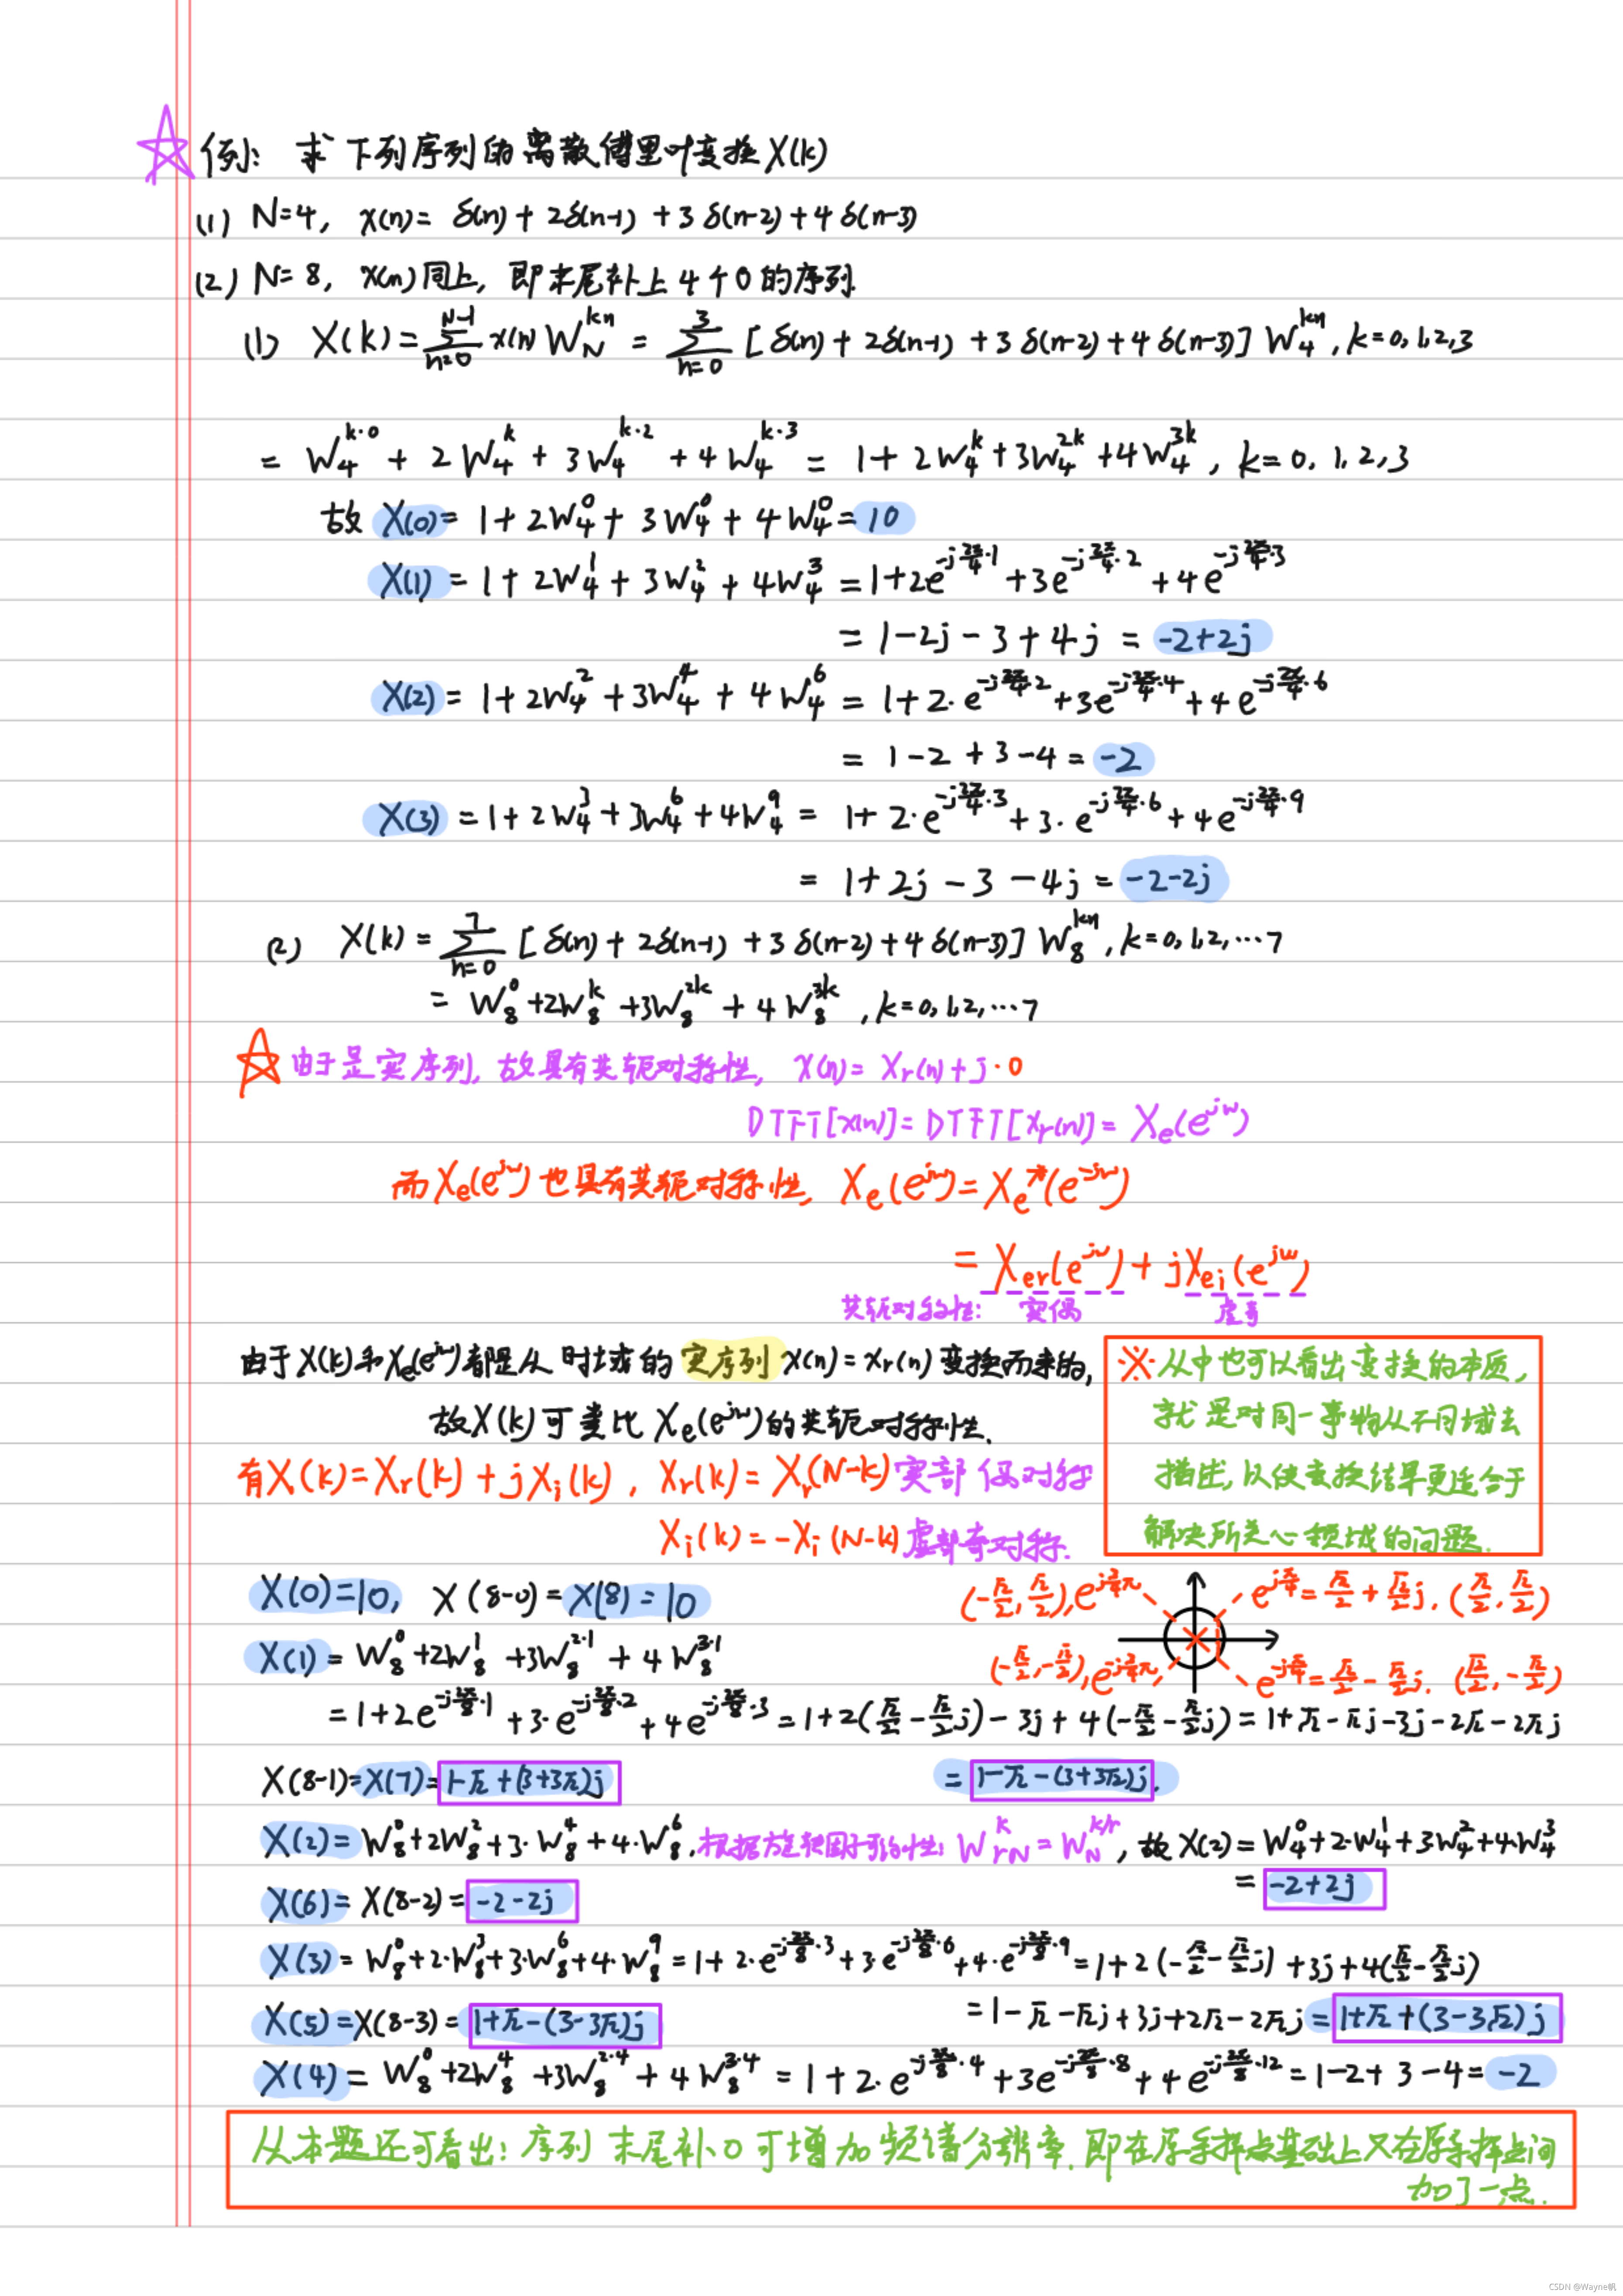 例: 求下列序列的离散傅里叶变换X(k)
(1) N=4, x(n)= δ(n)+2δ(n-1)+3δ(n-2)+4δ(n-3)
(2) N=8, x(n)同上, 即末尾补上4个0的序列.
(1) X(k)=∑_{n=0}^{N-1} x(n) W_N^{kn} = ∑_{n=0}^{3} [δ(n)+2δ(n-1)+3δ(n-2)+4δ(n-3)] W_4^{kn}, k=0,1,2,3
= W_4^{k·0} + 2W_4^{k} + 3W_4^{k·2} + 4W_4^{k·3} = 1+2W_4^{k}+3W_4^{2k}+4W_4^{3k}, k=0,1,2,3
故 X(0)= 1+2W_4^0+3W_4^0+4W_4^0=10
X(1) = 1+2W_4^1+3W_4^2+4W_4^3 = 1+2e^{-j\frac{2π}{4}·1}+3e^{-j\frac{2π}{4}·2}+4e^{-j\frac{2π}{4}·3}
= 1-2j-3+4j = -2+2j
X(2) = 1+2W_4^2+3W_4^4+4W_4^6 = 1+2·e^{-j\frac{2π}{4}·2}+3e^{-j\frac{2π}{4}·4}+4e^{-j\frac{2π}{4}·6}
= 1-2+3-4 = -2
X(3) = 1+2W_4^3+3W_4^6+4W_4^9 = 1+2·e^{-j\frac{2π}{4}·3}+3·e^{-j\frac{2π}{4}·6}+4e^{-j\frac{2π}{4}·9}
= 1+2j-3-4j = -2-2j
(2) X(k) = ∑_{n=0}^{7} [δ(n)+2δ(n-1)+3δ(n-2)+4δ(n-3)] W_8^{kn}, k=0,1,2,…7
= W_8^0+2W_8^k+3W_8^{2k}+4W_8^{3k}, k=0,1,2,…7
由于是实序列, 故具有共轭对称性, x(n)= x_r(n)+j·0
DTFT[x(n)]=DTFT[x_r(n)]= X_e(e^{jw})
而X_e(e^{jw})也具有共轭对称性, X_e(e^{jw})=X_e^*(e^{-jw})
= X_{er}(e^{jw})+jX_{ei}(e^{jw})
共轭对称性: 实偶 虚奇
由于X(k)和X_e(e^{jw})都是从时域的实序列x(n)=x_r(n)变换而来的,
故X(k)可类比X_e(e^{jw})的共轭对称性.
有X(k)=X_r(k)+jX_i(k), X_r(k)=X_r(N-k)实部偶对称
X_i(k)=-X_i(N-k)虚部奇对称.
※从中也可以看出变换的本质,
就是对同一事物从不同域去
描述, 以使变换结果更适合于
解决所关心领域的问题.
X(0)=10, X(8-0)=X(8)=10
(-\frac{√2}{2},\frac{√2}{2}),e^{j\frac{3}{4}π} e^{j\frac{π}{4}}=\frac{√2}{2}+\frac{√2}{2}j. (\frac{√2}{2},\frac{√2}{2})
(-\frac{√2}{2},-\frac{√2}{2}),e^{-j\frac{3}{4}π}, e^{-j\frac{π}{4}}=\frac{√2}{2}-\frac{√2}{2}j. (\frac{√2}{2},-\frac{√2}{2})
X(1) = W_8^0+2W_8^1+3W_8^{2·1}+4W_8^{3·1}
=1+2e^{-j\frac{2π}{8}·1}+3·e^{-j\frac{2π}{8}·2}+4e^{-j\frac{2π}{8}·3}=1+2(\frac{√2}{2}-\frac{√2}{2}j)-3j+4(-\frac{√2}{2}-\frac{√2}{2}j)=1+√2-√2j-3j-2√2-2√2j
X(8-1)=X(7)=1-√2+(3+3√2)j = 1-√2-(3+3√2)j.
X(2)=W_8^0+2W_8^2+3·W_8^4+4·W_8^6, 根据旋转因子可约性: W_{rN}^{k}=W_N^{k/r}, 故X(2)=W_4^0+2·W_4^1+3W_4^2+4·W_4^3
= -2+2j
X(6)=X(8-2)=-2-2j
X(3)=W_8^0+2·W_8^3+3·W_8^6+4·W_8^9=1+2·e^{-j\frac{2π}{8}·3}+3·e^{-j\frac{2π}{8}·6}+4·e^{-j\frac{2π}{8}·9}=1+2(-\frac{√2}{2}-\frac{√2}{2}j)+3j+4(\frac{√2}{2}-\frac{√2}{2}j)
=1-√2-√2j+3j+2√2-2√2j=1+√2+(3-3√2)j
X(5)=X(8-3)=1+√2-(3-3√2)j
X(4)=W_8^0+2W_8^4+3W_8^{2·4}+4W_8^{3·4}=1+2·e^{-j\frac{2π}{8}·4}+3e^{-j\frac{2π}{8}·8}+4e^{-j\frac{2π}{8}·12}=1-2+3-4=-2
从本题还可看出: 序列末尾补0可增加频谱分辨率, 即在原采样点基础上又在原采样点间
加了一点.
CSDN @Wayne帆